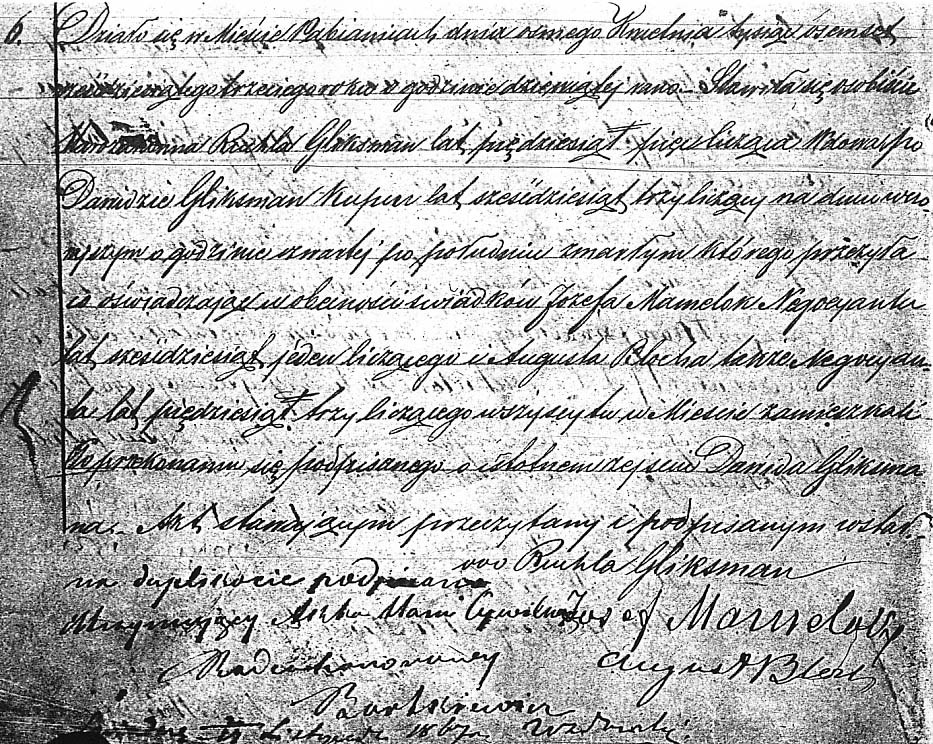 6. Działo się w Mieście Pabianicach, dnia ósmego Kwietnia tysiąc ósemset
sześćdziesiątego trzeciego roku o godzinie dziewiątej rano. Stawiła się osobiście
Ruchla Gliksman lat pięćdziesiąt pięć licząca Wdowa po
Dawidzie Gliksman Kupcu lat sześćdziesiąt trzy liczący na dniu wczo
rajszym o godzinie czwartej po południu zmarłym którego przeżyła
co oświadczając w obecności świadków Józefa Mamelok Negocjanta
lat sześćdziesiąt jeden liczącego i Augusta Blocha także Negocyan-
ta lat pięćdziesiąt trzy liczącego wszyscy tu w Mieście zamieszkali
Po przekonaniu się podpisanego o istotnem zejściu Dawida Gliksma
na. Akt stawającym przeczytany i podpisanym został.
na duplikacie podpisano
ooo Ruchla Gliksman
utrzymujący Akta Stanu Cywilnego
Josef Mamelok
Radca honorowy
August Bloch
Listopada 1867